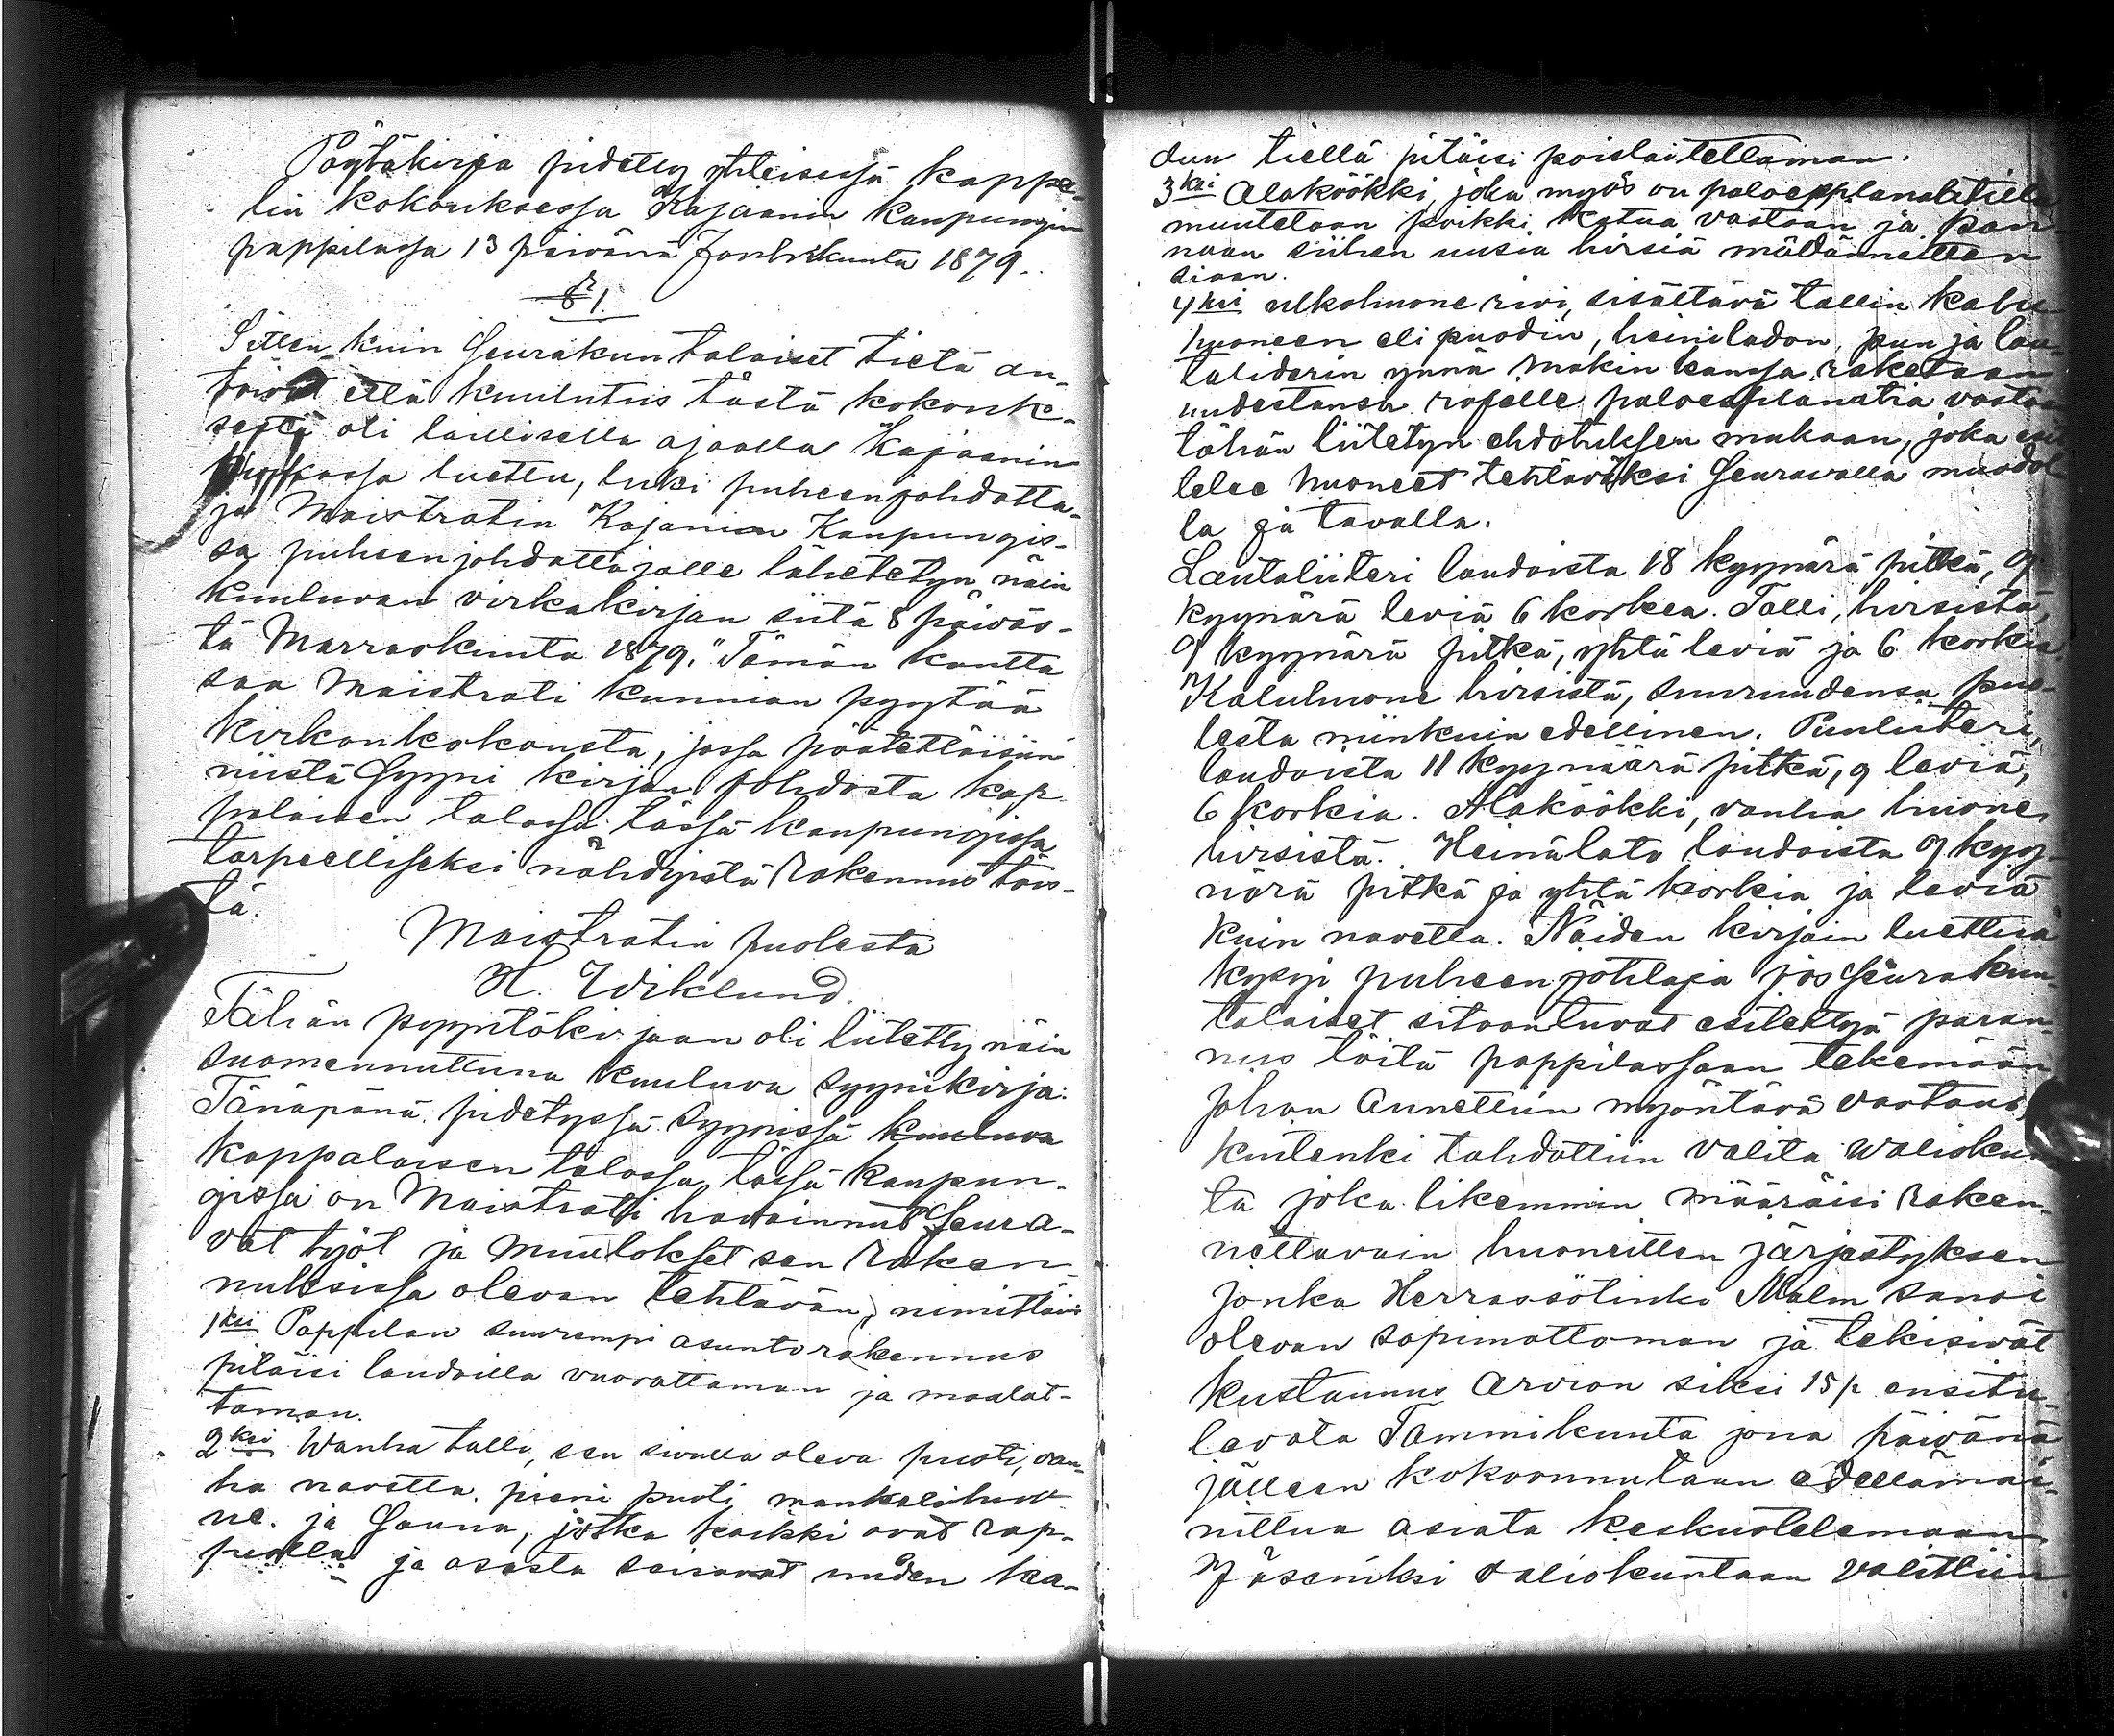 Pöytäkirja pidetty yhteisessä kappe-
lin kokouksessa Kajaanin kaupungin
pappilassa 13 päivänä Joulukuuta 1879.
§ 1.
Sitten kuin Seurakuntalaiset tietä an-
toivat että kuulutus tästä kokouk-
sesta oli laillisella ajaalla Kajaanin
kirkossa luettu, luki puheenjohdatta-
ja Maistratin Kajanin Kaupungis-
sa puheenjohdattajalle lähetetyn näin
kuuluvan virkakirjan siitä 8 päiväs-
tä Marraskuuta 1879. "Tämän kautta
saa Maistrati kunnian pyytää
kirkonkokousta, jossa päätettäisiin
niistä Syyni kirjan johdosta kap-
palaisen talossa tässä kaupungissa
tarpeelliseksi nähdyistä rakennus töis-
tä.
Maistratin puolesta
H. Wiklund.
Tähän pyyntökirjaan oli liitetty näin
suomennuttuna kuuluva syynikirja:
Tänäpänä pidetyssä Syynissä kuuluva
kappalaisen talossa tässä kaupun-
gissa on Maistratti havainnut Seura-
vat työt ja muutokset sen raken-
nuksissa olevan tehtävän, nimittäin
1ksi Pappilan suurempi asuntorakennus
pitäisi laudoilla vuorattaman ja maalat-
taman.
2ksi Wanha talli, sen sivulla oleva puoti, van-
ha navetta, pieni puoti mankelihuo-
ne. ja Sauna, jotka kaikki ovat rap-
piolla ja osasta seisovat uuden ka-
dun tiellä pitäisi poislaitettaman.
3ksi Alaköökki, joka myös on paloesplanatitiellä
muutetaan poikki katua vastaan ja pan-
naan siihen uusia hirsiä mädännetten
siaan.
4ksi ulkohuone rivi, sisältävä tallin kalu-
huoneen eli puodin, heiniladon, puu ja lau-
taliderin ynnä makin kanssa raketaan
uudestansa rajalle paloesplanatia vastaan
tähän liitetyn ehdotuksen mukaan, joka esit-
telee huoneet tehtäväksi Seuravalla muodol-
la ja tavalla.
Lautaliiteri laudoista 18 kyynärä pitkä, 9
kyynärä leviä 6 korkea. Talli, hirsistä,
9 kyynärä pitkä, yhtä leviä ja 6 korkia.
Kaluhuone hirsistä, suuruudensa puo-
lesta niinkuin edellinen. Puuliiteri,
laudoista 11 kyynäärä pitkä, 9 leviä,
6 korkia. Alaköökki, vanha huone,
hirsistä. Heinälato laudoista 9 kyy-
närä pitkä ja yhtä korkia ja leviä
kuin navetta. Näiden kirjain luettua
kysyi puheenjohtaja jos Seurakun-
talaiset sitoontuvat esitettyjä paran-
nus töitä pappilassaan tekemään
johon annettiin myöntävä vastaus,
kuitenki tahdottiin valita waliokun-
ta joka likemmin määräisi raken-
nettavain huoneitten järjestyksen
jonka Herrassötinki Malm sanoi
olevan sopimattoman ja tekisivät
kustannus arvion siksi 15 p. ensitu-
levata Tammikuuta jona päivänä
jälleen kokoonnutaan edellämai-
nittua asiata keskustelemaan.
Jäseniksi valiokuntaan valittiin